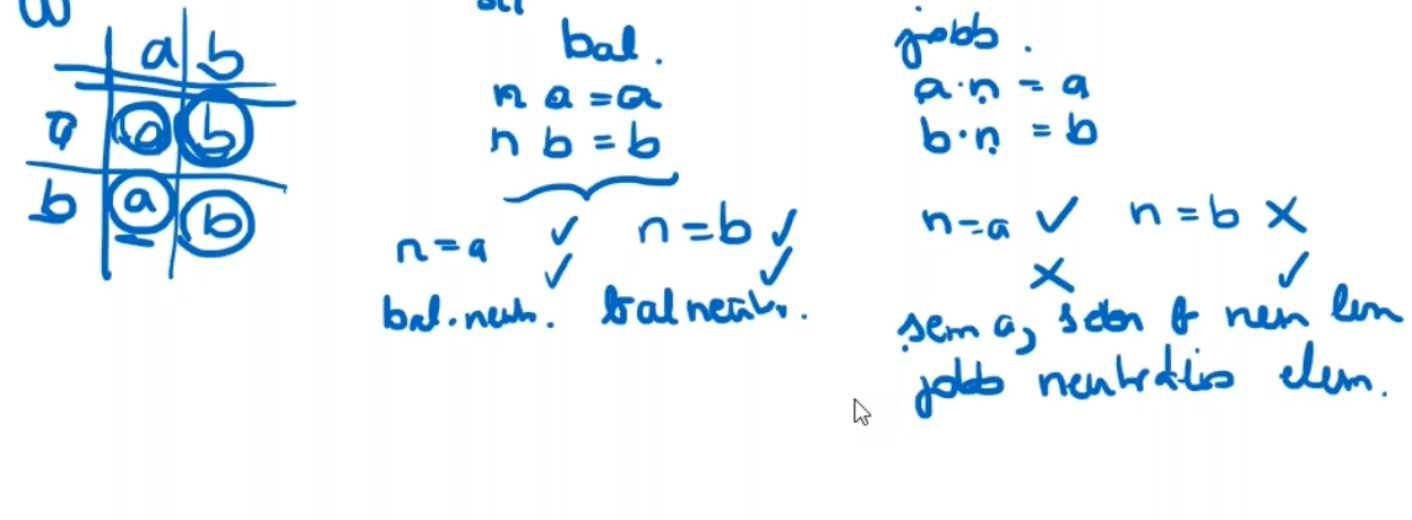 a b
a a b
b a b
bal.
n a = a
n b = b
n = a ✓ n = b ✓
✓ ✓
bal. neutr. bal neutr.
jobb.
a · n = a
b · n = b
n = a ✓ n = b ✗
✗ ✓
sem a, sem b nem lem
jobb neutrális elem.